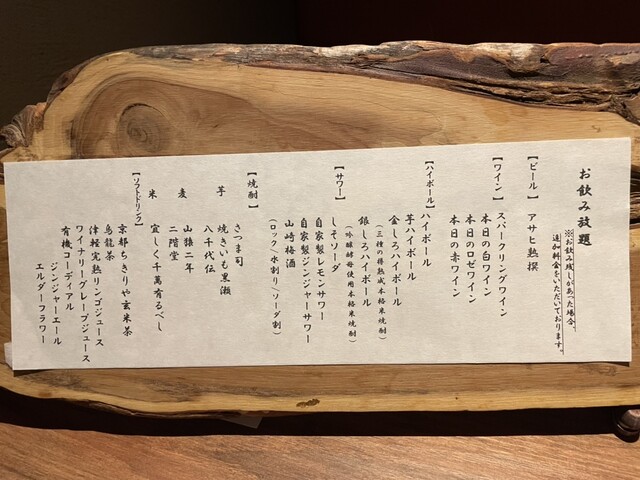 お飲み放題
※お飲み残しがあった場合
追加料金をいただいております。
【ビール】 アサヒ熟撰
【ワイン】 スパークリングワイン
本日の白ワイン
本日のロゼワイン
本日の赤ワイン
【ハイボール】 ハイボール
芋ハイボール
金しろハイボール
（三種の樽熟成本格米焼酎）
銀しろハイボール
（吟醸酵母使用本格米焼酎）
【サワー】 しそソーダ
自家製レモンサワー
自家製ジンジャーサワー
山崎梅酒
（ロック／水割り／ソーダ割）
【焼酎】
芋 さつま司
焼きいも黒瀬
八千代伝
麦 山猿二年
二階堂
米 宜しく千萬有るべし
【ソフトドリンク】
京都ちきりや玄米茶
烏龍茶
津軽完熟リンゴジュース
ワイナリーグレープジュース
有機コーディアル
ジンジャーエール
エルダーフラワー